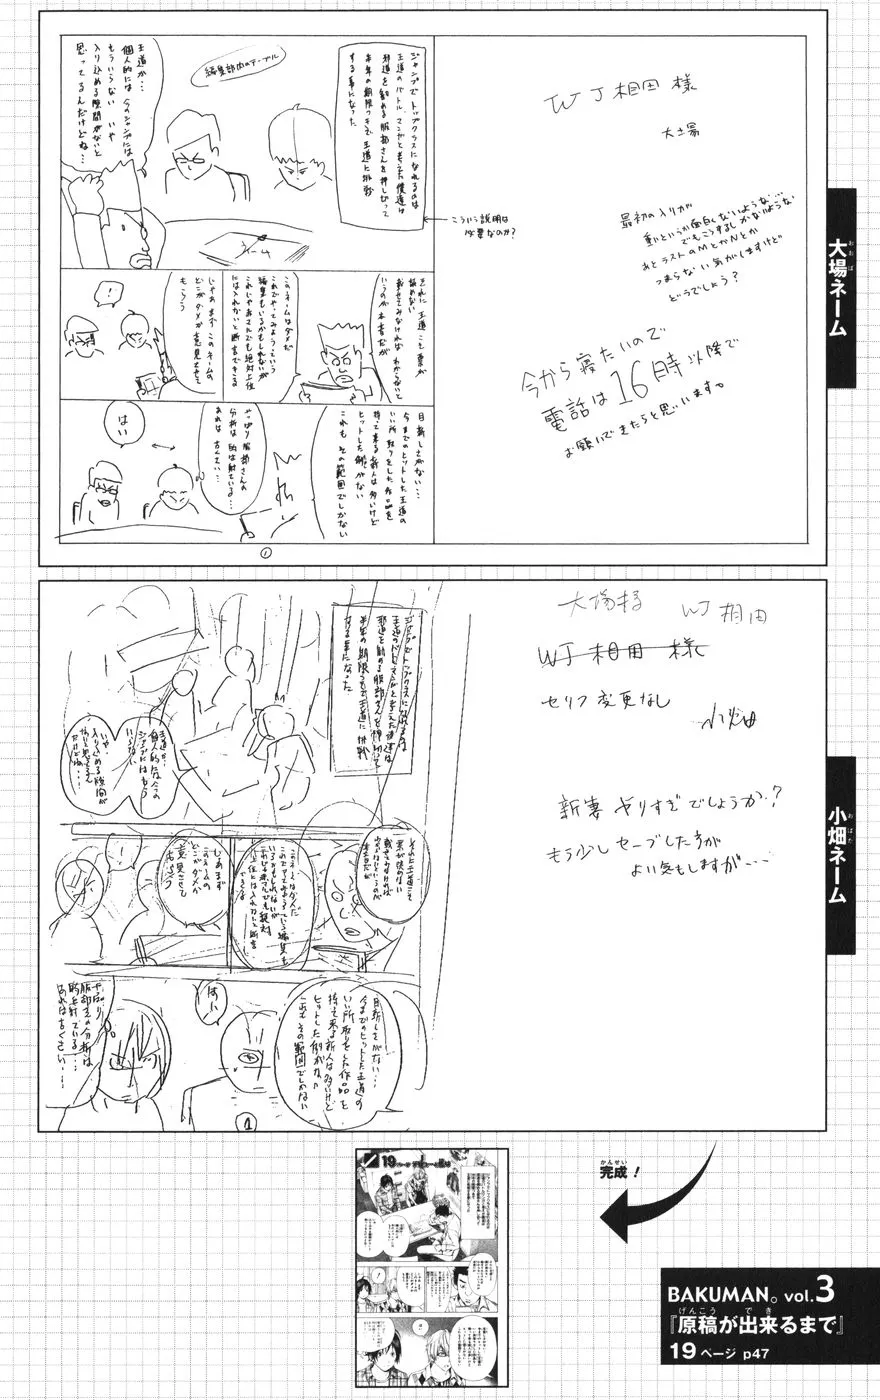 ジャンプでトップクラスになれるのは
王道のバトルマンガと考えた僕達は
邪道を勧める服部さんを押し切って
半年の期限つきで王道に挑戦
する事になった
編集部内のテーブル
王道か…
個人的には今のジャンプには
もういらない いや
入り込める隙間がないと
思ってるんだけどね…
こういう説明は
必要なのか?
それに王道こそ票が
読めない
載せてみなければわからないと
いうのが本音だが
このネームはダメだ
これでやってみようっていう
編集もいるかもしれないが
これじゃあさんでも絶対上位
には入れないと断言できる
じゃあまずこのネームの
どこがダメか意見させて
もらう
!
目新しさがない…
今までのヒットした王道の
いい所取りをした作品を
持って来る新人は多いけど
ヒットした例がない
これもその範囲でしかない
やっぱり服部さんの
分析は的は射ている…
あれは古くさい…
はい
①
WJ相田様
大土場
最初の入りが
動というか面白くないような…
でもこうするしかないような
あとラストのMとかNとか
つまらない気がしますけど
どうでしょう?
今から寝たいので
電話は16時以降で
お願いできたらと思います。
大場ネーム
おおば
ジャンプでトップクラスになれるのは
王道のバトルマンガと考えた僕達は
邪道を勧める服部さんを押し切って
半年の期限つきで王道に挑戦
する事になった
王道か…
個人的には今の
ジャンプにはもう
いらない
いや
入り込める隙間が
ないと思ってるん
だけどね…
それに王道こそ
票が読めない
載せてみなければ
わからないというのが
本音だが
このネームはダメだ
じゃあまず
このネームの
どこがダメか
意見させて
もらう
目新しさがない…
今までのヒットした王道の
いい所取りをした作品を
持って来る新人は多いけど
ヒットした例がない
これもその範囲でしかない
はい
やっぱり
服部さんの分析は
的を射ている…
あれは古くさい…
①
大場様
WJ相田
WJ相田様
セリフ変更なし
小畑
新妻ヤりすぎでしょうか?
もう少しセーブした方が
よい気もしますが…
小畑ネーム
おばた
19ページ
かんせい
完成!
BAKUMAN。vol.3
げんこう でき
『原稿が出来るまで』
19ページ p47